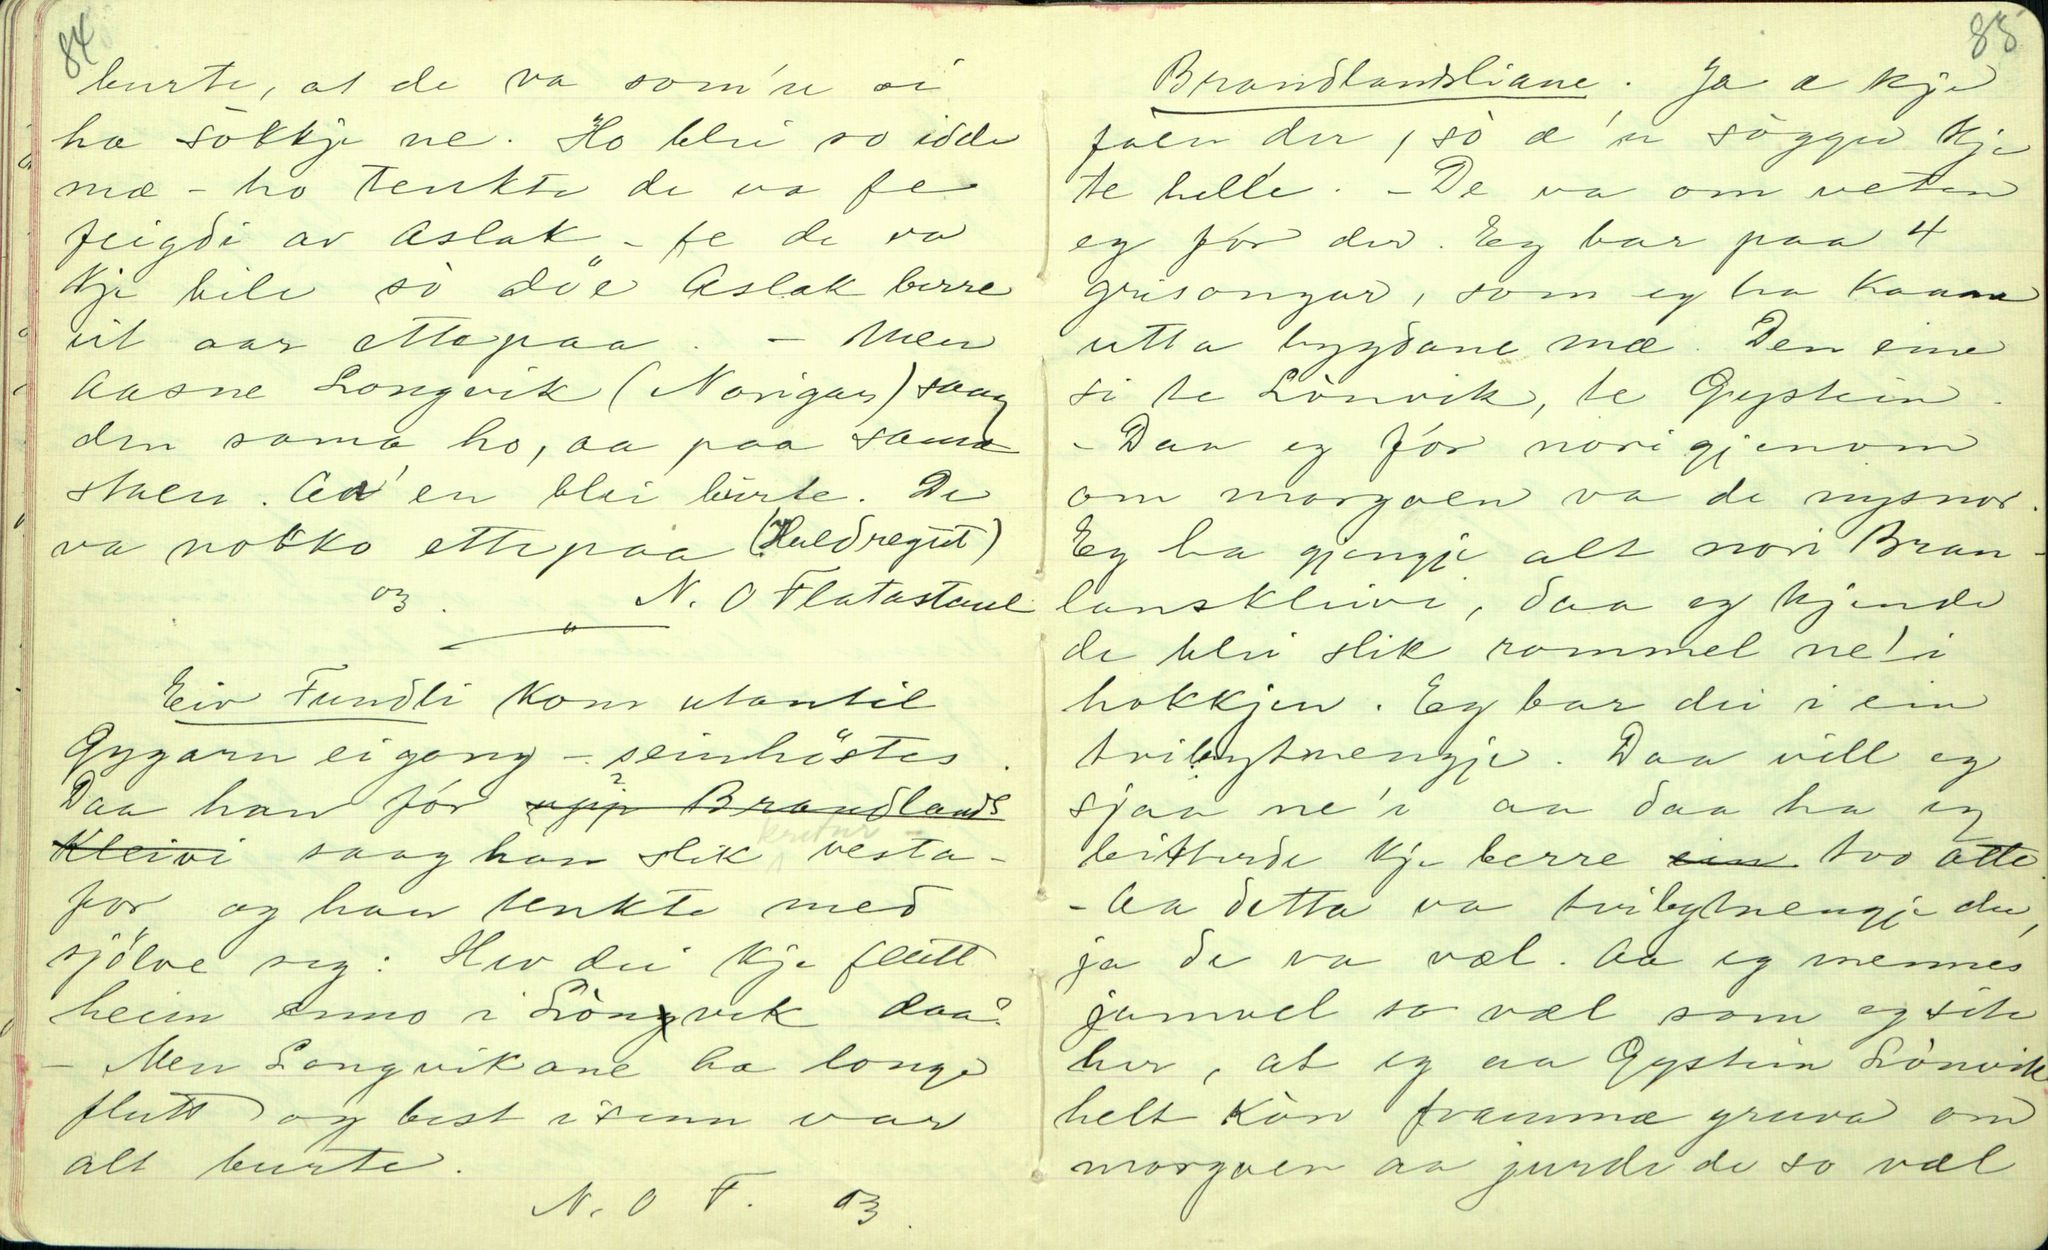 84
burte, at de va som'n si
ha sökkje ne. Ho blei so idde
mæ - ho tenkte de va fe
feigdi av Aslak - fe de va
kje bile so döe Aslak berre
eit aar ettepaa. - Men
Aasne Longvik (Norigar) saag
den sama ho, aa paa sama
staen. Aa'en blei burte. De
va nokko ettepaa (Huldregut)
03. N. O Flatastaul
Eiv Fundli kom utantil
Gygarn ei gong - seinhöstes.
Daa han fór upp Brandlands
Kleivi saag han slik kretur vesta-
for og han tenkte med
sjölve seg: Hev dei kje flutt
heim enno i Longvik daa?
- Men Longvikane ha longe
flutt og best i senn var
alt burte.
N. O F. 03.
85
Brandlandsliane. Ja æ kje
fäen der, so æ'n söggu kje
te hellé. - De va om veten
eg fór der. Eg bar paa 4
grisongar, som eg ha kaana
utta bygdane mæ. Den eine
si te Lònvik, te Gystein.
- Daa eg fór nori gjenom
om morgoen va de nysnor.
Eg ha gjengje alt nori Bran-
lanskleivi, daa eg kjende
de blei slik rommel ne'i
hokkjen. Eg bar dei i ein
tribytnengje. Daa vill eg
sjaa ne'i aa daa ha eg
bitterde kje berre ein tvo atte.
- Aa detta va tribytnengje du,
ja de va væl. Aa eg mennes
jamvel so væl som eg site
her, at eg aa Gystein Lònvik
helt kòn frammæ gruva om
morgoen aa jurde de so væl